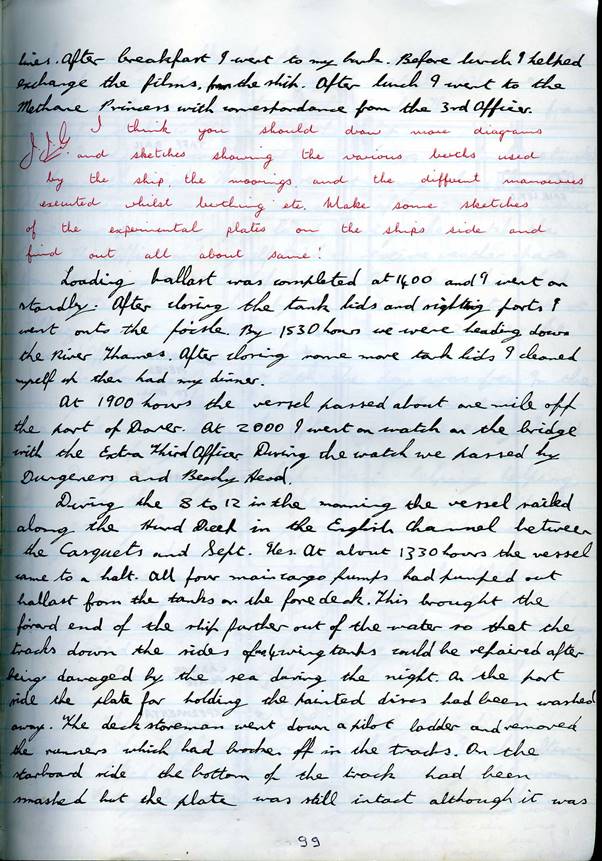 lines. After breakfast I went to my bunk. Before lunch I helped
exchange the films, from the ship. After lunch I went to the
Methane Princess with correspondance from the 3rd Officer.
I think you should draw more diagrams
and sketches showing the various berths used
by the ship, the moorings, and the different manoeuvres
executed whilst berthing etc. Make some sketches
of the experimental plates on the ships side and
find out all about same!
Loading ballast was completed at 1400 and I went on
standby. After closing the tank lids and sighting ports I
went onto the fo'csle. By 1530 hours we were heading down
the River Thames. After closing some more tank lids I cleaned
myself up then had my dinner.
At 1900 hours the vessel passed about one mile off
the port of Dover. At 2000 I went on watch on the bridge
with the Extra Third Officer During the watch we passed by
Dungeness and Beachy Head.
During the 8 to 12 in the morning the vessel sailed
along the Hurd Deep in the English Channel between
the Casquets and Sept. Iles. At about 1330 hours the vessel
came to a halt. All four main cargo pumps had pumped out
ballast from the tanks on the fore deck. This brought the
forard end of the ship further out of the water so that the
tracks down the sides of wing tanks could be repaired after
being damaged by the sea during the night. On the port
side the plate for holding the painted discs had been washed
away. The deck storeman went down a pilot ladder and removed
the runners which had broken off in the tracks. On the
starboard side the bottom of the track had been
smashed but the plate was still intact although it was
99